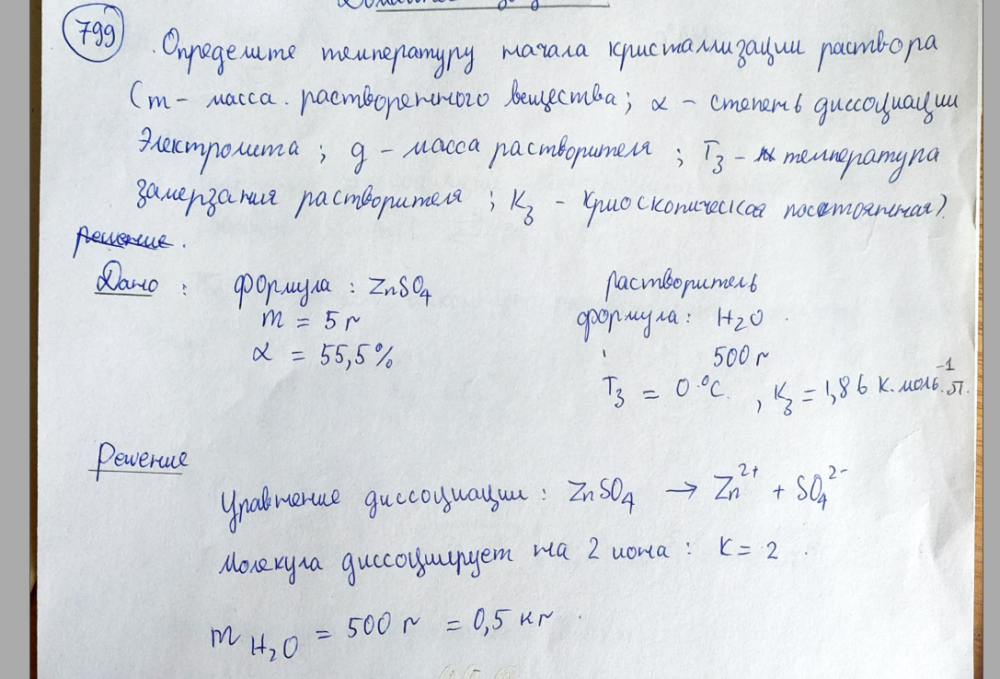 799
Определите температуру начала кристаллизации раствора
(m - масса растворенного вещества; α - степень диссоциации
электролита; g - масса растворителя; Tз - температура
замерзания растворителя; Kз - криоскопическая постоянная).
Решение.
Дано: формула: ZnSO₄ растворитель
m = 5 г формула: H₂O
α = 55,5% 500 г
Tз = 0 °C, Kз = 1,86 К·моль⁻¹·л.
Решение
Уравнение диссоциации: ZnSO₄ → Zn²⁺ + SO₄²⁻
Молекула диссоциирует на 2 иона: K = 2
m H₂O = 500 г = 0,5 кг